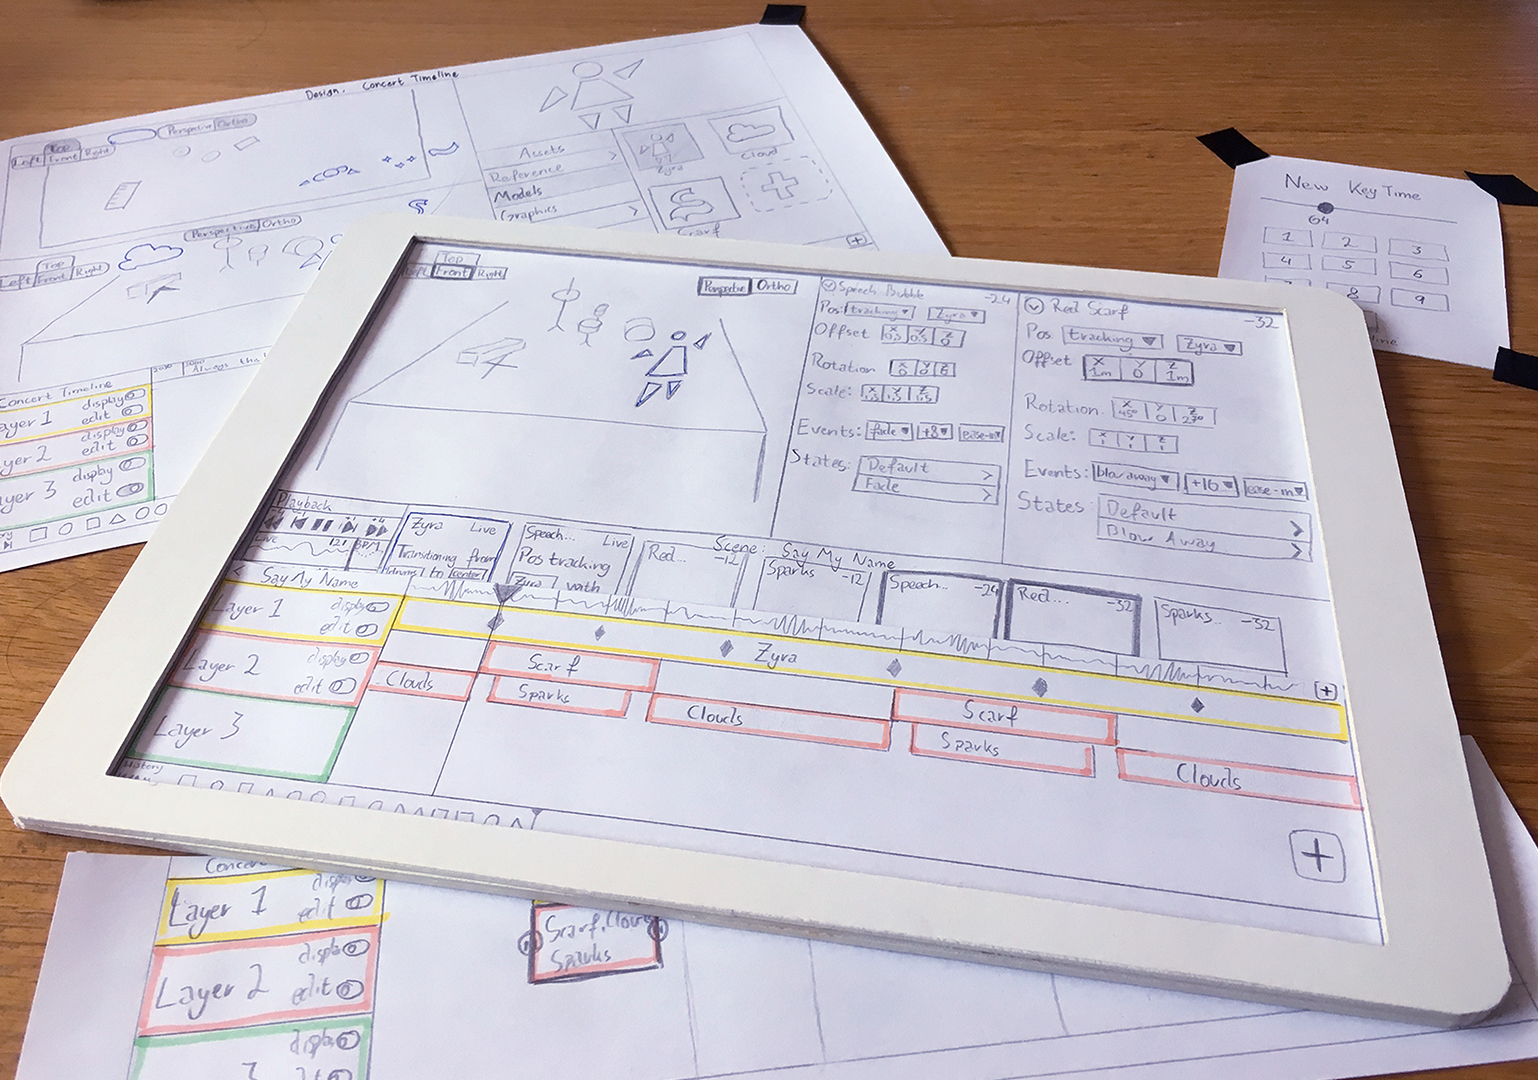 Design. Concert Timeline
Top
Left Front Right
Perspective Ortho
Assets
Reference
Models
Graphics
Zyra
Cloud
Scarf
Perspective Ortho
Top
Left Front Right
Concert Timeline
Layer 1 display
edit
Layer 2 display
edit
Layer 3 display
edit
New Key Time
64
1 2 3
4 5 6
8 9
Top
Left Front Right
Perspective Ortho
Speech Bubble -24
Pos: tracking Zyra
Offset X Y Z
Rotation X Y Z
Scale: X Y Z
Events: fade +8 ease-in
States: Default
Fade
Red Scarf -32
Pos tracking Zyra
Offset X Y Z
1m 0 1m
Rotation. X Y Z
45° 0
Scale: X Y Z
1 1 1
Events: blow away +16 ease-in
States: Default
Blow Away
Playback
Live 121
Zyra Live
Transitioning from
to center
Speech... Live
Pos tracking
Zyra with
Scene: Say My Name
Red... -12
Sparks -12
Speech... -24
Red... -32
Sparks.. -32
< Say My Name
Layer 1 display
edit
Layer 2 display
edit
Layer 3
History
Zyra
Scarf
Clouds
Sparks
Clouds
Scarf
Sparks
Clouds
+
+
Layer 1 display
edit
Layer 2 display
edit
display
3
Scarf, Clouds
Sparks